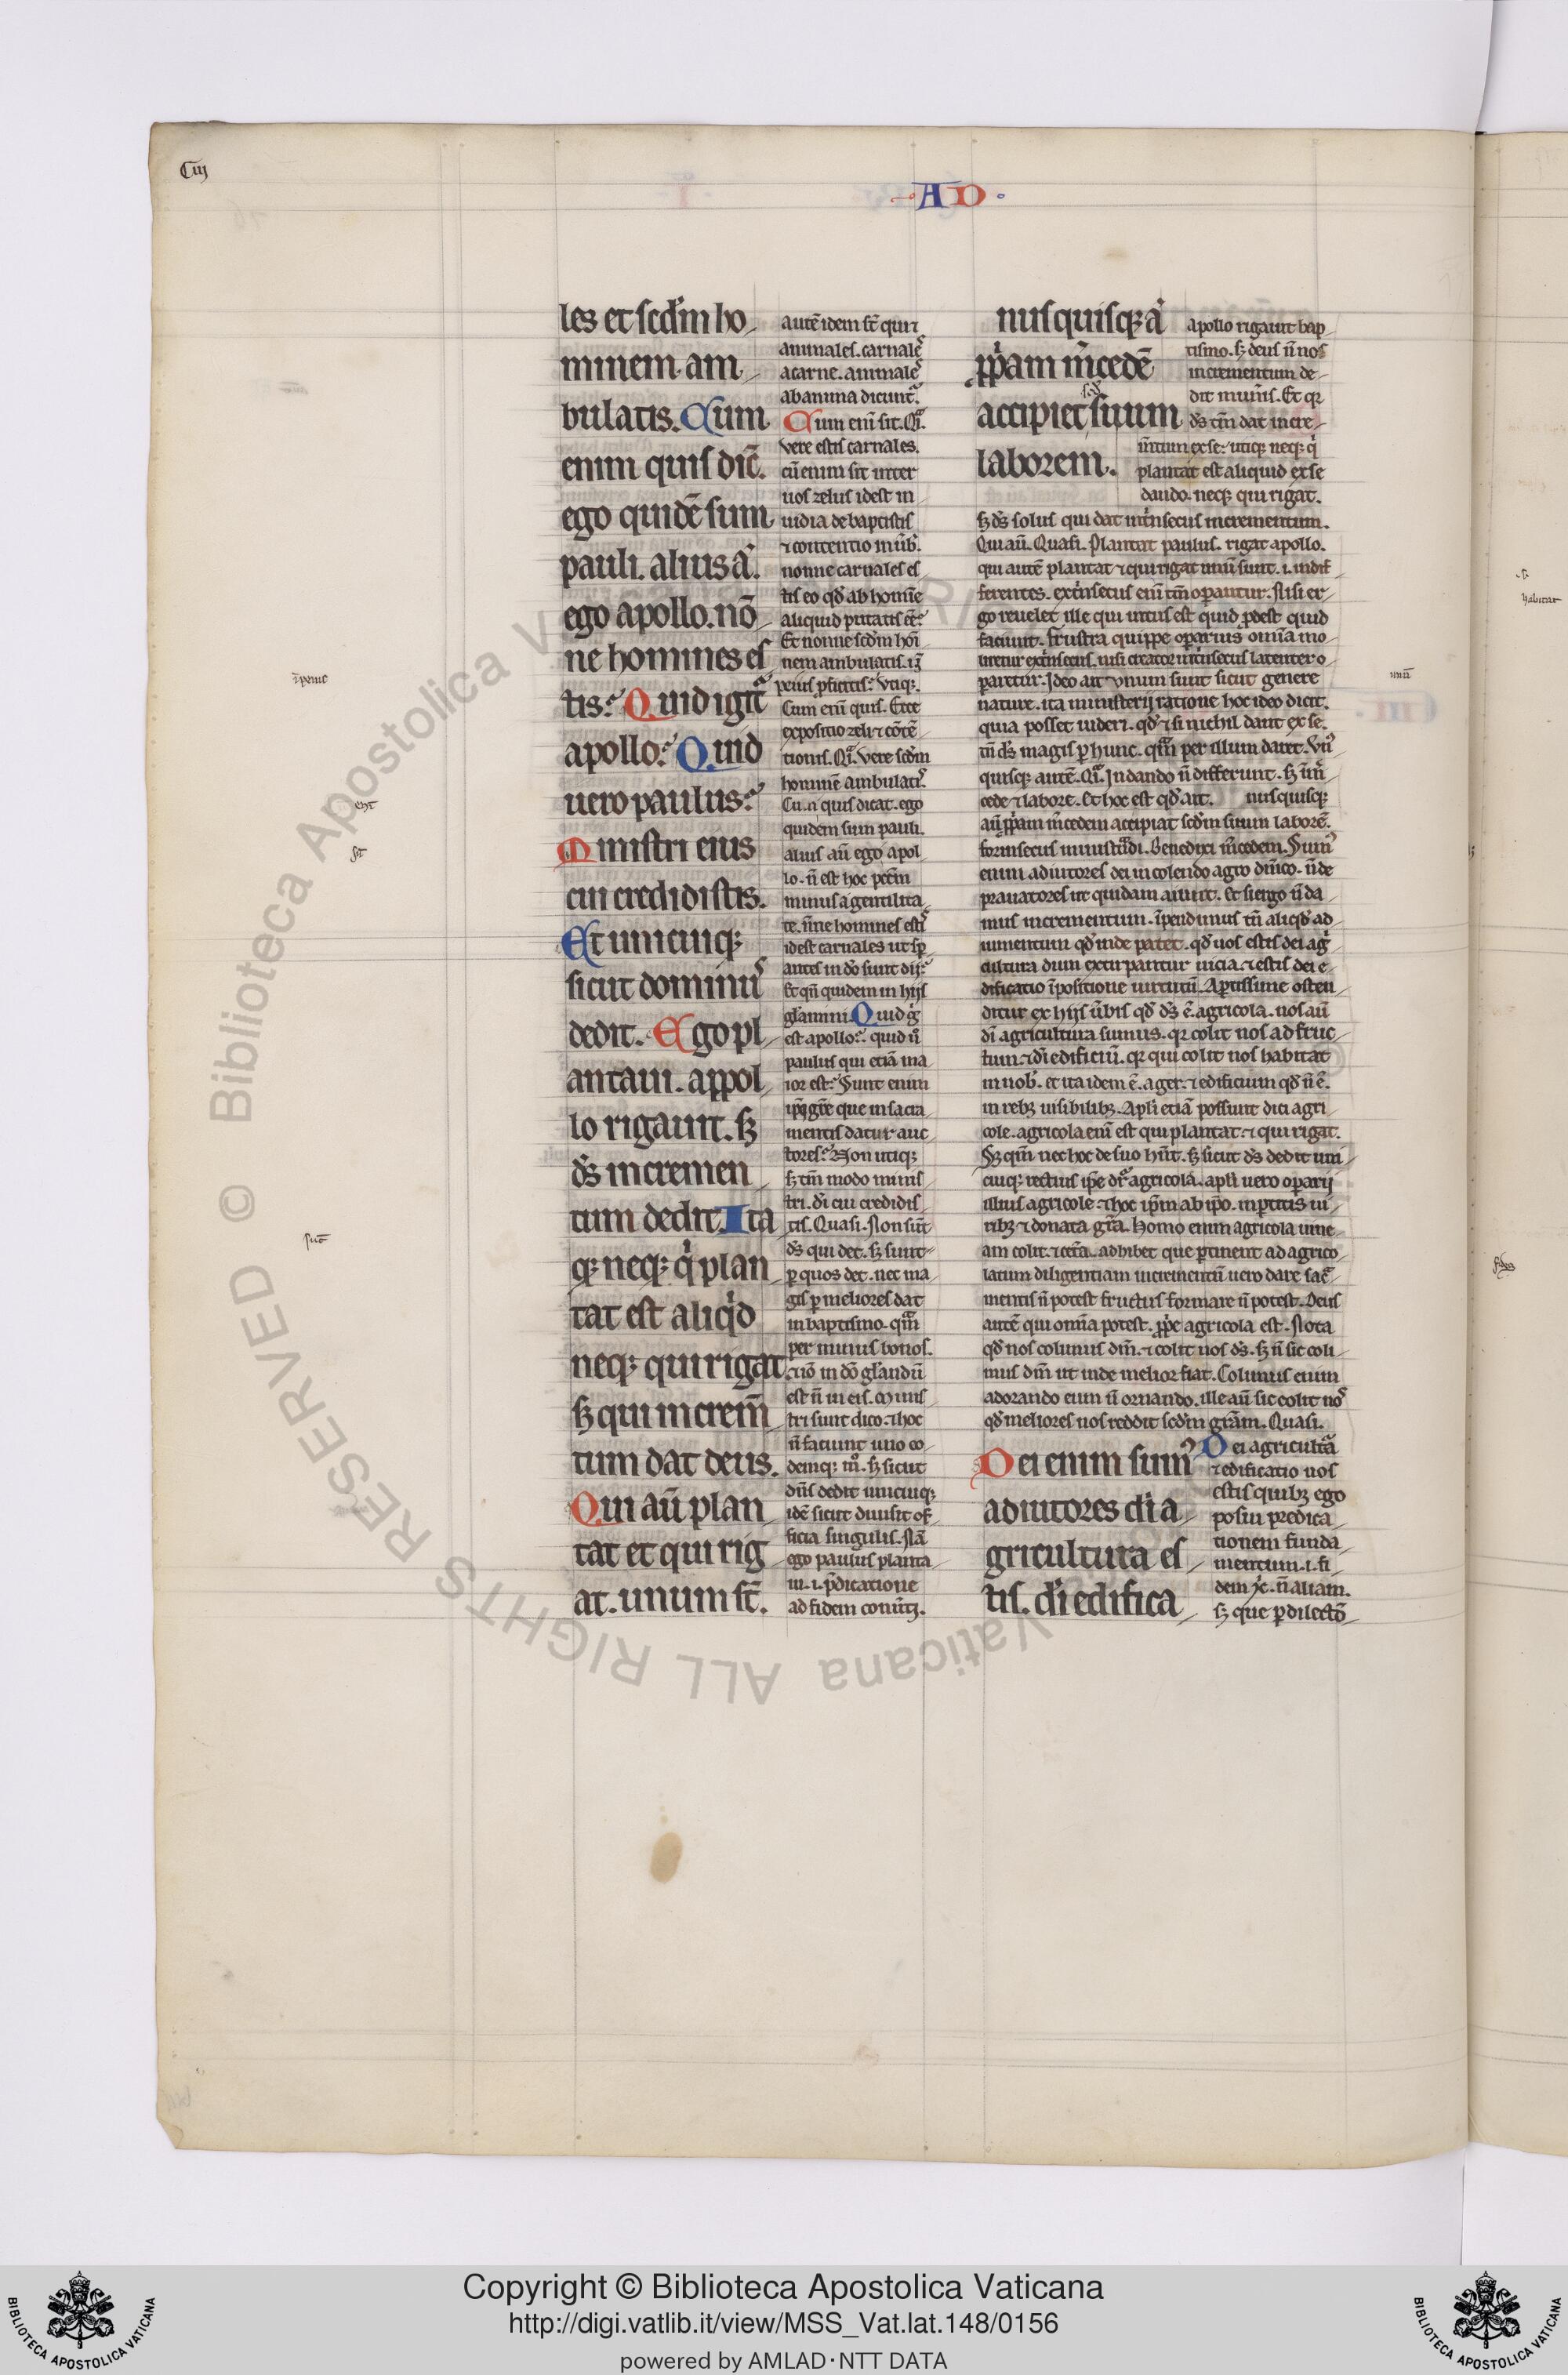 Ciij
AD
les et scd̄m ho
minem am
bulatis. Cum
enim quis dic̄.
ego quidē sum
pauli. alius aͥ.
ego apollo. nō
ne homines es
tis? Quid igit͛
apollo? Quid
uero paulus?
Ministri eius
cui credidistis.
Et unicuiq;
sicut dominuˢ
dedit. Ego pl
antaui. appol
lo rigauit. sꝫ
dˢ incremen
tum dedit. Ita
q; neq; qͥ plan
tat est aliqͥd
neq; qui rigat
sꝫ qui increm̄
tum dat deus.
Qui aū plan
tat et qui rig
at. unum st̄.
autē idem st̄ qui ⁊
animales. carnaleˢ
a carne. animaleˢ
ab anima dicunt͛.
Cum eni͞ sit. Qͣ.
vere estis carnales.
cū enim sit inter
uos zelus id est in
uidia de baptistis
⁊ contentio in ūb̾.
nonne carnales es
tis eo qd̾ ab homīe
aliquid putatis eē?
Et nonne scd̄m hoı̄
nem ambulatis. iͫ
peius ꝓficitis? Vtiq;.
Cum enī quis. Ecce
expositio zeli ⁊ cōtē
tionis. Qͣ. Vere scd̄m
hominē ambulatiˢ.
Cum quis dicat. ego
quidem sum pauli.
alius aū ego apol
lo. n̄ est hoc pctm̄
minus a gentilita
te. n̄ne homines estiˢ
id est carnales ut sp̄
antes in dō sunt dij?
Et qn̄ quidem in hijs
gl̄amini. Quid gͥ
est apollo? quid ū
paulus qui etiā ma
ior est? Sunt enim
ip̄i gr̄e que in sacra
mentis datur auc
tores? Non utiq;
sꝫ tm̄ modo minis
tri. di̾ cui credidis
tis. Quasi. Non sūt
dˢ qui det. sꝫ sunt
ꝑ quos det. nec ma
gis ꝑ meliores dat
in baptismo. qͣm
per minus bonos.
⁊ iō in dō gl̄andū
est n̄ in eis. Minis
tri sunt dico. ⁊ hoc
n̄ faciunt uno eo
demq; mō. sꝫ sicut
dn̄s dedit unicuiq;
idē sicut diuisit of
ficia singulis. Nā
ego paulus planta
ui .i. p̄dicatione
ad fidem conūti.
nusquisq; aͥ
ꝓpͥam m̄cedē
accipiet s̾ suum
laborem.
apollo rigauit bap
tismo. sꝫ deus n̄ nos
incrementum de
dit mun̄is. Et qr
dˢ tm̄ dat incre
m̄tum ex se. utiq; neq; qͥ
plantat est aliquid ex se
dando. neq; qui rigat.
sꝫ dˢ solus qui dat int̾nsecus incrementum.
Qui aū. Quasi. Plantat paulus. rigat apollo.
qui autē plantat ⁊ qui rigat unū sunt .i. indif
ferentes. ext̾nsecus enī tm̄ oꝑantur. Nisi er
go reuelet ille qui intus est quid ꝓdest quid
faciunt. frustra quippe oꝑarius om̄ia mo
liretur ext̾nsecus. nisi creator int̾nsecus latenter o
ꝑaretur. Ideo ait vnum sunt sicut genere
nature. ita ministerij ratione hoc ideo dicit.
quia posset uideri. qd̾ ⁊ si nichil dant ex se.
tn̄ dˢ magis ꝑ hunc. qͣm per illum daret. Vn̾
quisq; autē. Qͣ. In dando n̄ differunt. sꝫ in m̄
cede ⁊ labore. Et hoc est qd̾ ait. nusquisq;
aū ꝓpͥam m̄cedem accipiat scd̄m suum laborē.
forinsecus ministͣdi. Benedixi m̄cedem. Sum̾
enim adiutores dei in colendo agro dn̄ico. n̄ de
prauatores ut quidam aiunt. Et si ergo n̄ da
mus incrementum. īpendimus tn̄ aliqd̾ ad
iumentum qd̾ inde patet. qd̾ uos estis dei agͥ
cultura dum extirpantur uicia. ⁊ estis dei e
dificatio īpositione uirtutū. Aptissime osten
ditur ex hijs ūbis qd̾ dˢ ē agricola. nos aū
di̾ agricultura sumus. qr colit nos ad fruc
tum. ⁊ di̾ edificiū. qr qui colit nos habitat
in nob̾. et ita idem ē. ager. ⁊ edificium qd̾ n̄ ē.
in rebꝫ uisibilibꝫ. Apl̄i etiā possunt dici agri
cole. agricola enī est qui plantat. ⁊ qui rigat.
Sꝫ qm̄ nec hoc de suo hn̄t. sꝫ sicut dˢ dedit uni
cuiq; rectius ip̄e dr̄ agricola. apl̄i uero oꝑarij
illius agricole. ⁊ hoc ip̄m ab ip̄o. inꝑtitis ui
ribꝫ ⁊ donata gr̄a. Homo enim agricola uine
am colit. ⁊ cetͣ. adhibet que ꝑtinent ad agrico
latum diligentiam incrementū uero dare sac̾
mentis n̄ potest fructus formare n̄ potest. Deus
autē qui om̄ia potest. ꝓpͥe agricola est. Nota
qd̾ nos colimus dm̄. ⁊ colit nos dˢ. sꝫ n̄ sic coli
mus dm̄ ut inde melior fiat. Colimus enim
adorando eum n̄ ornando. ille aū sic colit noˢ
qd̾ meliores nos reddit scd̄m gr̄am. Quasi.
Dei enim sum̾
adiutores di̾ a
gricultura es
tis. di̾ edifica
Dei agricultͣa
⁊ edificatio uos
estis quibꝫ ego
posui predica
tionem funda
mentum .i. fi
dem xͥ. n̄ aliam.
sꝫ que ꝑ dilectō
īpeius
sit
sūt
unū
habitat
Copyright © Biblioteca Apostolica Vaticana
http://digi.vatlib.it/view/MSS_Vat.lat.148/0156
powered by AMLAD·NTT DATA
© Biblioteca Apostolica Vaticana ALL RIGHTS RESERVED
BIBLIOTECA APOSTOLICA VATICANA
BIBLIOTECA APOSTOLICA VATICANA